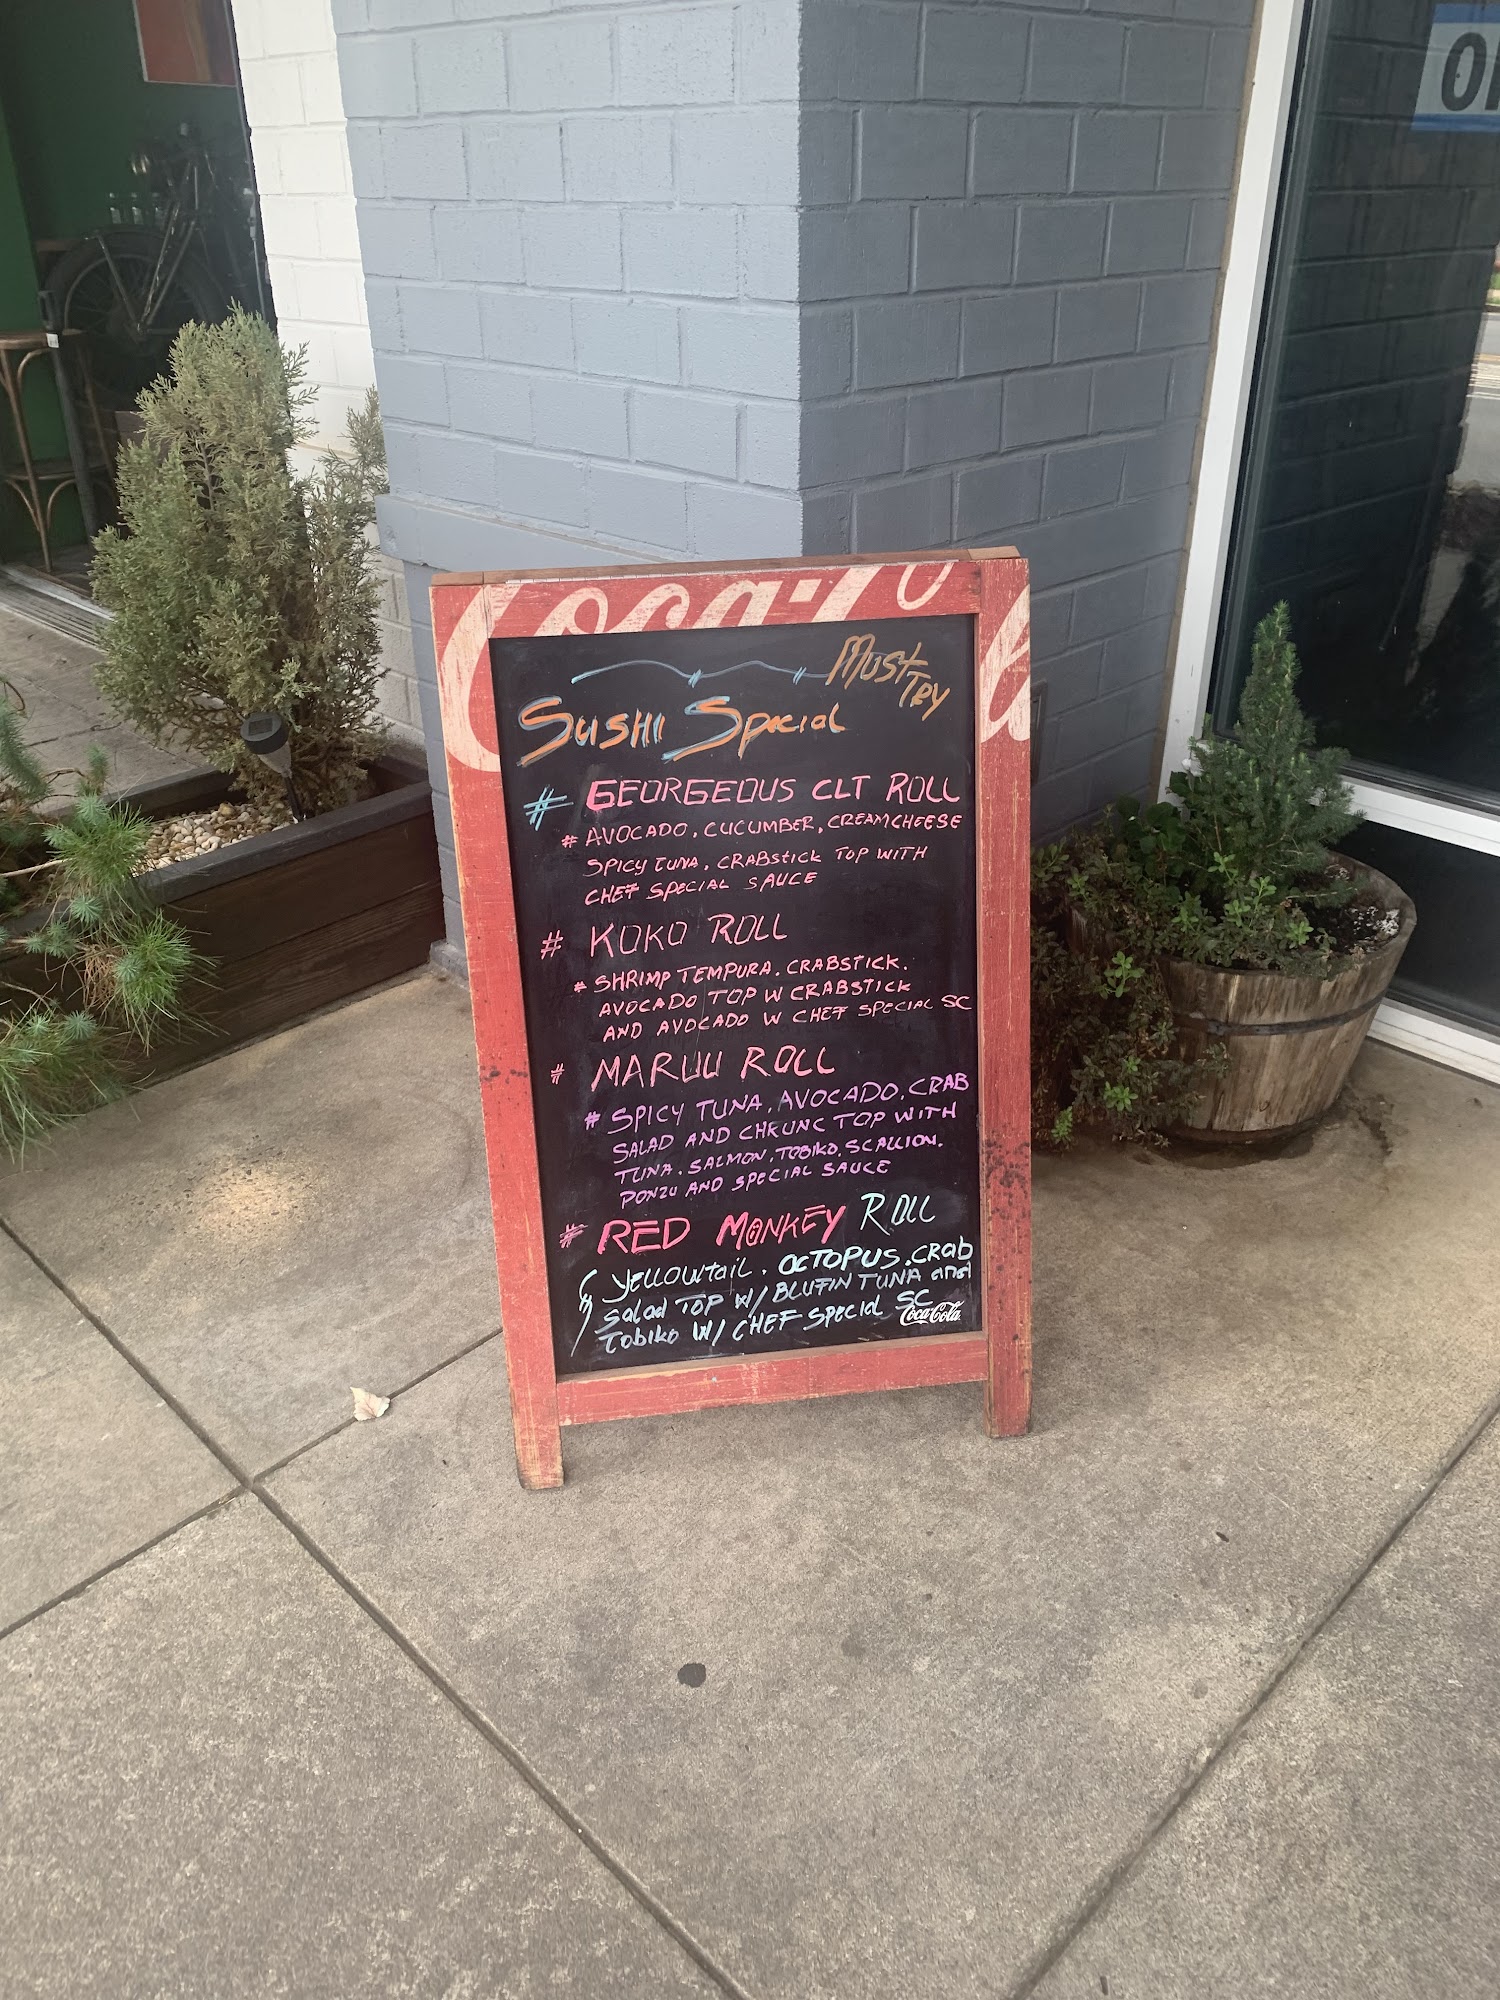 Coca-Co
MUST
TRY
SUSHI Special
# GEORGEOUS CLT ROLL
# AVOCADO, CUCUMBER, CREAMCHEESE
SPICY TUNA, CRABSTICK TOP WITH
CHEF SPECIAL SAUCE
# KOKO ROLL
# SHRIMP TEMPURA. CRABSTICK.
AVOCADO TOP W CRABSTICK
AND AVOCADO W CHEF SPECIAL SC
# MARUU ROLL
# SPICY TUNA, AVOCADO, CRAB
SALAD AND CHRUNC TOP WITH
TUNA, SALMON, TOBIKO, SCALLION.
PONZU AND SPECIAL SAUCE
# RED MONKEY ROLL
YELLOWTAIL, OCTOPUS, CRAB
SALAD TOP W/ BLUFIN TUNA and
TOBIKO W/ CHEF SPECIAL SC
Coca-Cola